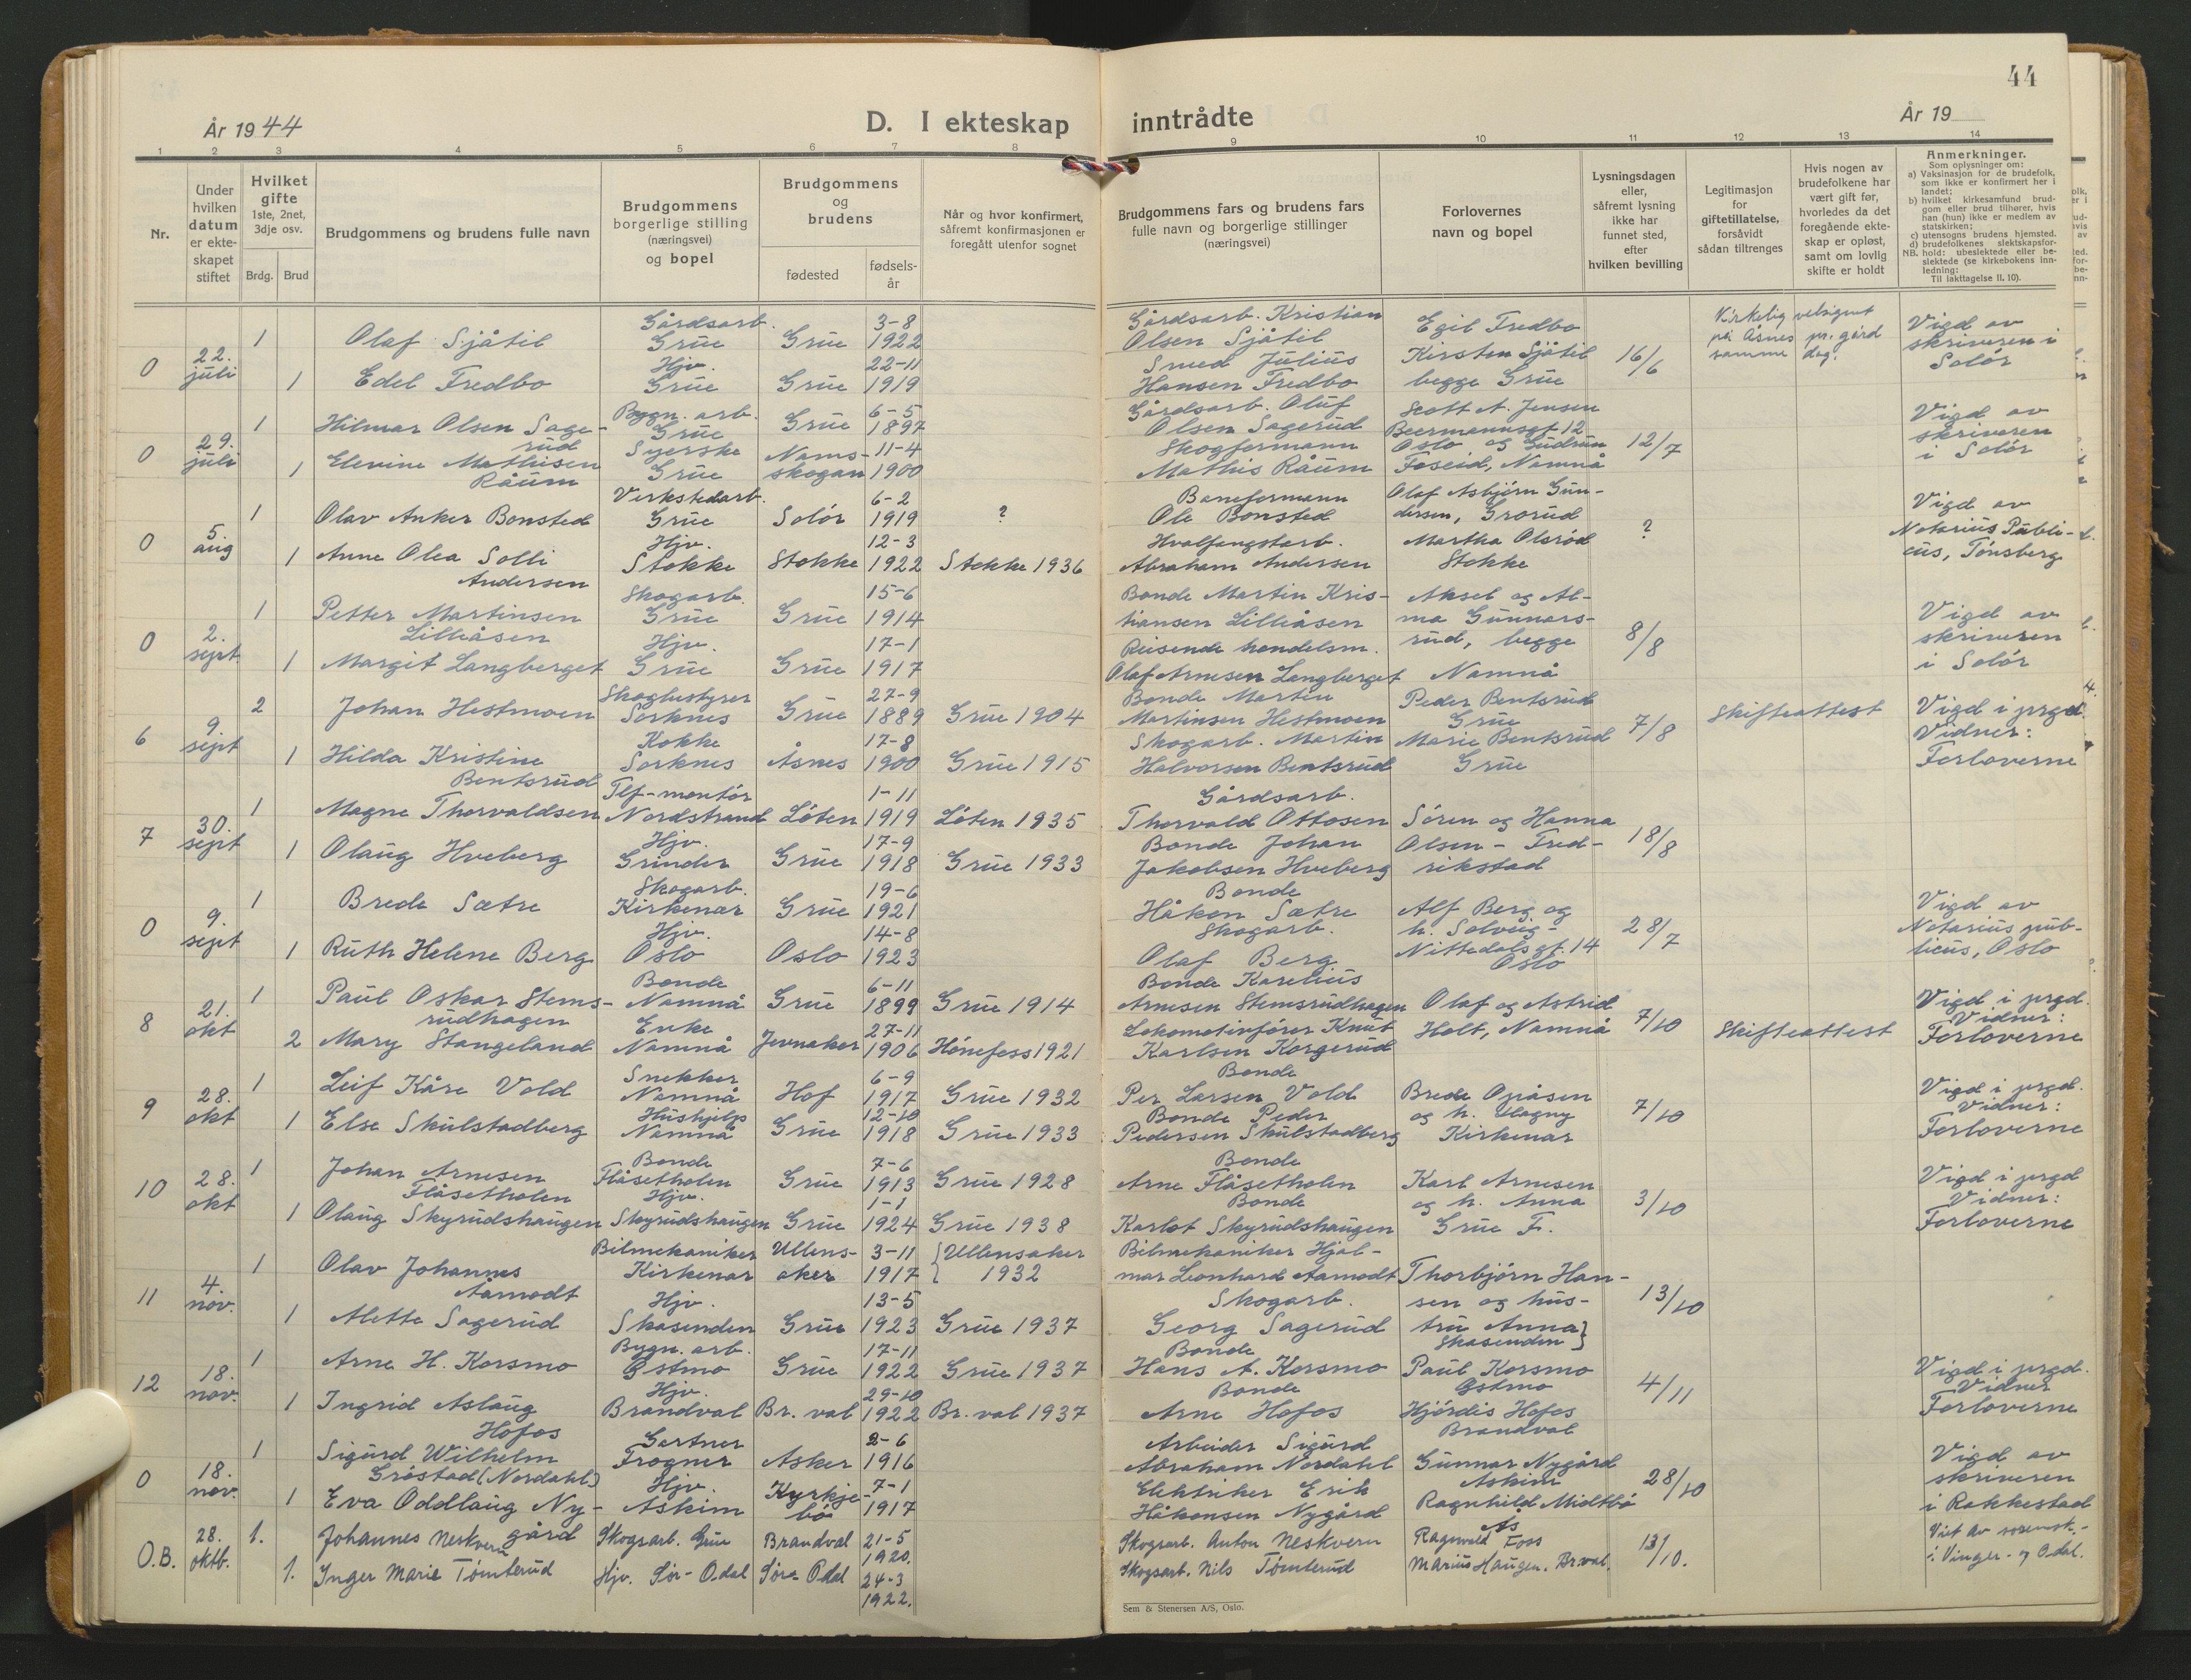 44
År 1944
D. I ekteskap inntrådte
År 19
1 2 3 4 5 6 7 8 9 10 11 12 13 14
Nr.
Under hvilken datum er ekteskapet stiftet
Hvilket gifte 1ste, 2net, 3dje osv.
Brdg. Brud
Brudgommens og brudens fulle navn
Brudgommens borgerlige stilling (næringsvei) og bopel
Brudgommens og brudens
fødested
fødselsår
Når og hvor konfirmert, såfremt konfirmasjonen er foregått utenfor sognet
Brudgommens fars og brudens fars fulle navn og borgerlige stillinger (næringsvei)
Forlovernes navn og bopel
Lysningsdagen eller, såfremt lysning ikke har funnet sted, efter hvilken bevilling
Legitimasjon for giftetillatelse, forsåvidt sådan tiltrenges
Hvis nogen av brudefolkene har vært gift før, hvorledes da det foregående ekteskap er opløst, samt om lovlig skifte er holdt
Anmerkninger.
Som oplysninger om:
a) Vaksinasjon for de brudefolk, som ikke er konfirmert her i landet;
b) hvilket kirkesamfund brudgom eller brud tilhører, hvis han (hun) ikke er medlem av statskirken;
c) utensogns brudens hjemsted.
d) brudefolkenes slektskapsforhold: ubeslektede eller beslektede (se kirkebokens innledning:
NB.
Til iakttagelse II. 10).
0 22. juli 1 Olaf Sjåtil Gårdsarb. Grue Grue 3-8 1922 Gårdsarb. Kristian Olsen Sjåtil Egil Fredbo 16/6 Kirkelig velsignet på Åsnes pr.gård samme dag. Vigd av skriveren i Solør
1 Edel Fredbo Hjv. Grue Grue 22-11 1919 Smed Julius Hansen Fredbo Kirsten Sjåtil begge Grue
0 29. juli 1 Hilmar Olsen Sagerud Bygn. arb. Grue Grue 6-5 1897 Gårdsarb. Oluf Olsen Sagerud Scott A. Jensen Beermannsgt 12 Oslo og Gudrun Foseid, Namnå 12/7 Vigd av skriveren i Solør
1 Elevine Mathisen Råum Syerske Grue Namsskogan 11-4 1900 Skogformann Mathis Råum
0 5. aug 1 Olav Anker Bonsted Verkstedarb. Grue Solør 6-2 1919 ? Baneformann Ole Bonsted Olaf Asbjørn Gundersen, Grorud ? Vigd av Notarius Publicus, Tønsberg
1 Anne Olea Solli Andersen Hjv. Stokke Stokke 12-3 1922 Stokke 1936 Hvalfangstarb. Abraham Andersen Martha Olsrød Stokke
0 2. sept 1 Petter Martinsen Lilleåsen Skogarb. Grue Grue 15-6 1914 Bonde Martin Kristiansen Lilleåsen Aksel og Alma Gunnarsrud, begge Namnå 8/8 Vigd av skriveren i Solør
1 Margit Langberget Hjv. Grue Grue 17-1 1917 Reisende handelsm. Olaf Arnesen Langberget
6 9. sept 2 Johan Hestmoen Skogbestyrer Sorknes Grue 27-9 1889 Grue 1904 Bonde Martin Martinsen Hestmoen Peder Bentsrud Grue 7/8 Skifteattest Vigd i prgd Vidner: Forloverne
1 Hilda Kristine Bentsrud Kokke Sorknes Åsnes 17-8 1900 Grue 1915 Skogarb. Martin Halvorsen Bentsrud Marie Bentsrud Grue
7 30. sept 1 Magne Thorvaldsen Tlf-montør Nordstrand Løten 1-11 1919 Løten 1935 Gårdsarb. Thorvald Ottosen Søren og Hanna Olsen - Fredrikstad 18/8
1 Olaug Hveberg Hjv. Grinder Grue 17-9 1918 Grue 1933 Bonde Johan Jakobsen Hveberg
0 9. sept 1 Brede Sætre Skogarb. Kirkenær Grue 19-6 1921 Bonde Håkon Sætre Alf Berg og h. Solveig - Nittedalsgt. 14 Oslo 28/7 Vigd av Notarius publicus, Oslo
1 Ruth Helene Berg Hjv. Oslo Oslo 14-8 1923 Skogarb. Olaf Berg
8 21. okt 1 Paul Oskar Stemsrudhagen Bonde Namnå Grue 6-11 1899 Grue 1914 Bonde Karelius Arnesen Stemsrudhagen Olaf og Astrid Holt, Namnå 7/10 Skifteattest Vigd i prgd. Vidner: Forloverne
2 Mary Stangeland Enke Namnå Jevnaker 27-11 1906 Hønefoss 1921 Lokomotivfører Knut Karlsen Korgerud
9 28. okt 1 Leif Kåre Vold Snekker Namnå Hof 6-9 1917 Grue 1932 Bonde Per Larsen Vold Brede Opåsen og h. Magny Kirkenær 7/10 Vigd i prgd. Vidner: Forloverne
1 Else Skulstadberg Hushjelp Namnå Grue 12-10 1918 Grue 1933 Bonde Peder Pedersen Skulstadberg
10 28. okt 1 Johan Arnesen Flåsetholen Bonde Flåsetholen Grue 7-6 1913 Grue 1928 Bonde Arne Flåsetholen Karl Arnesen og h. Anna Grue F. 3/10 Vigd i prgd Vidner: Forloverne
1 Olaug Skyrudshaugen Hjv. Skyrudshaugen Grue 1-1 1924 Grue 1938 Bonde Karlot Skyrudshaugen
11 4. nov. 1 Olav Johannes Aamodt Bilmekaniker Kirkenær Ullensaker 3-11 1917 Ullensaker 1932 Bilmekaniker Hjalmar Leonhard Aamodt Thorbjørn Hansen og hustru Anna Skasenden 13/10
1 Alette Sagerud Hjv. Skasenden Grue 13-5 1923 Grue 1937 Skogarb. Georg Sagerud
12 18. nov. 1 Arne H. Korsmo Bygn. arb. Østmo Grue 17-11 1922 Grue 1937 Bonde Hans A. Korsmo Paul Korsmo Østmo 4/11 Vigd i prgd. Vidner Forloverne
1 Ingrid Aslaug Hofos Hjv. Brandval Br. val 29-10 1922 Br. val 1937 Bonde Arne Hofos Hjørdis Hofos Brandval
0 18. nov. 1 Sigurd Wilhelm Grøstad (Nordahl) Gartner Frogner Asker 2-6 1916 Arbeider Sigurd Abraham Nordahl Gunnar Nygård Askim 28/10 Vigd av skriveren i Rakkestad
1 Eva Oddlaug Nygård Hjv. Askim Kyrkjebø 7-1 1917 Elektriker Erik Håkonsen Nygård Ragnhild Midtbø Ås
O.B. 28. oktb. 1. Johannes Neskvern Skogsarb. Grue Brandval 21-5 1920. Skogsarb. Anton Neskvern Ragnvald Foss 13/10. Viet av sorensk. i Vinger- og Odal.
1. Inger Marie Tømterud Hjv. Sør-Odal Søre Odal 24-3 1922. Skogsarb. Nils Tømterud Marius Haugen. Br.val.
Sem & Stenersen A/S, Oslo.